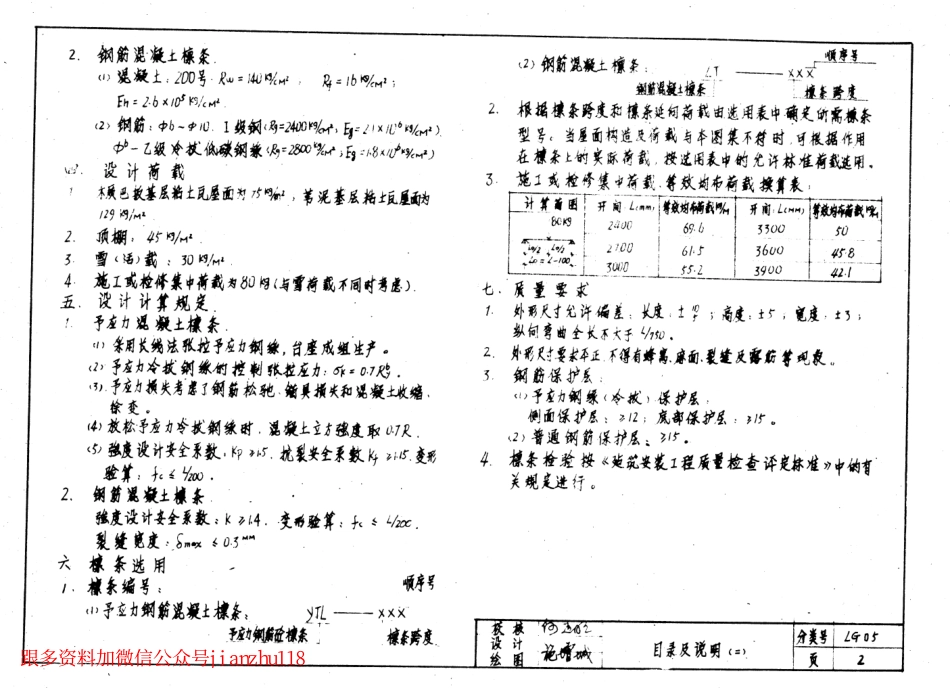 2. 钢筋混凝土檩条
(1) 混凝土：200号 Rw=140 kg/cm²， Rf=16 kg/cm²；
Eh=2.6×10⁵ kg/cm²
(2) 钢筋：φ6~φ10，I级钢(Rg=2400kg/cm²，Eg=2.1×10⁶kg/cm²)
乙级冷拔低碳钢丝(Rg=2800kg/cm²；Eg=1.8×10⁶kg/cm²)
设计荷载
1 木质巴板基层粘土瓦屋面为75kg/m²，苇泥基层粘土瓦屋面为
129 kg/m²
2. 顶棚：45 kg/m²
3. 雪(活)载：30 kg/m²
4. 施工或检修集中荷载为80kg(与雪荷载不同时考虑)
五. 设计计算规定
1. 予应力混凝土檩条
(1) 采用长线法张拉予应力钢丝，台座成组生产。
(2) 予应力冷拔钢丝的控制张拉应力：σk=0.7
(3) 予应力损失考虑了钢筋松弛、锚具损失和混凝土收缩、
徐变。
(4) 放松予应力冷拔钢丝时，混凝土立方强度取0.7R.
(5) 强度设计安全系数，Kp≥1.5，抗裂安全系数Kf≥1.15，变形
验算：fc≤L/200.
2. 钢筋混凝土檩条
强度设计安全系数：K≥1.4，变形验算：fc≤L/200，
裂缝宽度：δmax≤0.3mm
六 檩条选用
1. 檩条编号：
顺序号
(1) 予应力钢筋混凝土檩条： YTL——×××
予应力钢筋砼檩条 檩条跨度
顺序号
(2) 钢筋混凝土檩条： LT ——×××
钢筋混凝土檩条 檩条跨度
2. 根据檩条跨度和檩条延向荷载由选用表中确定所需檩条
型号。当屋面构造及荷载与本图集不符时，可根据作用
在檩条上的实际荷载，按选用表中的允许标准荷载选用。
3. 施工或检修集中荷载、等效均布荷载换算表：
计算简图 开间L(mm) 等效均布荷载kg/m 开间L(mm) 等效均布荷载kg/m
80kg 2400 69.6 3300 50
Lo/2 Lo/2 2700 61.5 3600 45.8
Lo=L-100 3000 55.2 3900 42.1
七. 质量要求
1. 外形尺寸允许偏差：长度：；高度：±5；宽度：±3；
纵向弯曲全长不大于L/750.
2. 外形尺寸要求平正，不得有蜂窝、麻面、裂缝及露筋等现象。
3. 钢筋保护层：
(1) 予应力钢丝(冷拔)保护层：
侧面保护层：≥12；底部保护层：≥15。
(2) 普通钢筋保护层：≥15。
4. 檩条检验按《建筑安装工程质量检查评定标准》中的有
关规定进行。
校核
设计
绘图
目录及说明(二)
分类号 LG05
页 2
跟多资料加微信公众号jianzhu118